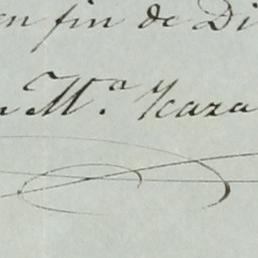 en fin de Di
a M.ª Ycaza